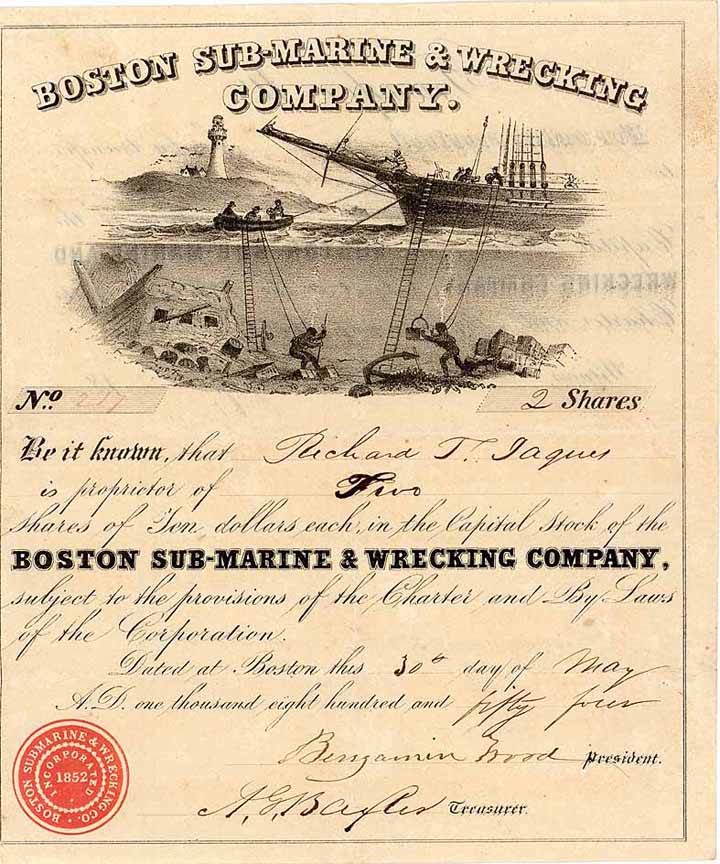 BOSTON SUB-MARINE & WRECKING
COMPANY.
No. 217
2 Shares
Be it known, that Richard T. Jaques
is proprietor of Two
shares of Ten dollars each, in the Capital Stock of the
BOSTON SUB-MARINE & WRECKING COMPANY,
subject to the provisions of the Charter and By Laws
of the Corporation.
Dated at Boston this 30th day of May
A.D. one thousand eight hundred and fifty four
Benjamin Wood President.
Treasurer.
BOSTON SUBMARINE & WRECKING CO.
INCORPORATED
1852